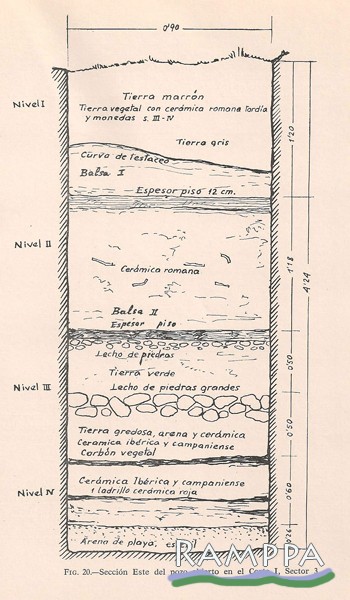 0'90
Nivel I
Tierra marrón
Tierra vegetal con cerámica romana tardía
y monedas s. III-IV
Tierra gris
1'20
Curva de testaceo
Balsa I
Espesor piso 12 cm.
Nivel II
Cerámica romana
1'18
4'24
Balsa II
Espesor piso
Lecho de piedras
0'50
Tierra verde
Nivel III
Lecho de piedras grandes
Tierra gredosa, arena y cerámica
Ceramica ibérica y campaniense
Carbón vegetal
0'50
Nivel IV
Cerámica Ibérica y campaniense
1 ladrillo cerámica roja
0'60
Arena de playa,
0'26
RAMPPA
FIG. 20.—Sección Este del pozo abierto en el Corte I, Sector 3.